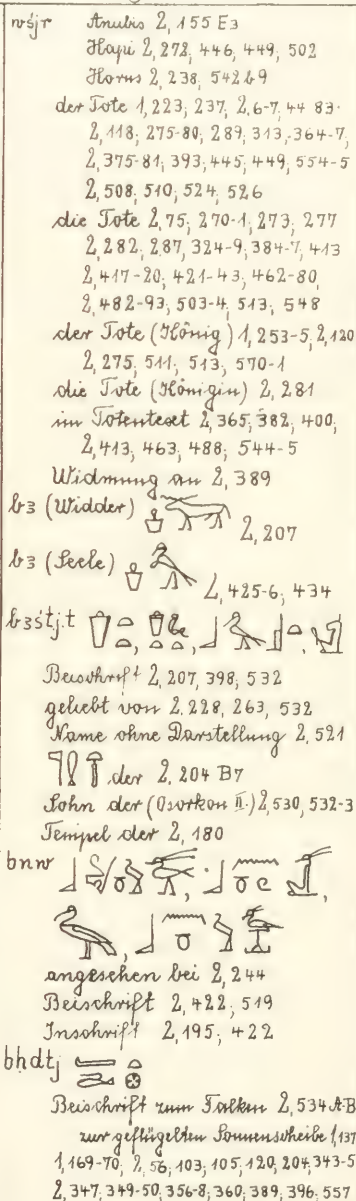 wśjr Anubis 2, 155 E3
Hapi 2, 278, 446, 449, 502
Horus 2, 238, 542 b9
der Tote 1, 223; 237, 2, 6-7, 44 83.
2, 118; 275-80; 289; 313, 364-7,
2, 375-81; 393; 445; 449, 554-5
2, 508; 510; 524, 526
die Tote 2, 75; 270-1, 273, 277
2, 282, 287, 324-9; 384-7, 413
2, 417-20; 421-43, 462-80,
2, 482-93, 503-4, 513, 548
der Tote (König) 1, 253-5, 2, 120
2, 275, 511, 513, 570-1
die Tote (Königin) 2, 281
im Totentext 2, 365, 382, 400,
2, 413, 463, 488, 544-5
Widmung an 2, 389
b3 (Widder) 2, 207
b3 (Seele) 2, 425-6, 434
b3śtj.t
Beischrift 2, 207, 398, 532
geliebt von 2, 228, 263, 532
Name ohne Darstellung 2, 521
der 2, 204 B7
Sohn der (Osorkon II.) 2, 530, 532-3
Tempel der 2, 180
bnw
angesehen bei 2, 244
Beischrift 2, 422, 519
Inschrift 2, 195, 422
bhdtj
Beischrift zum Falken 2, 534 A-B
zur geflügelten Sonnenscheibe 1, 137
1, 169-70, 2, 56, 103, 105, 120, 204, 343-5
2, 347, 349-50, 356-8, 360, 389, 396, 557